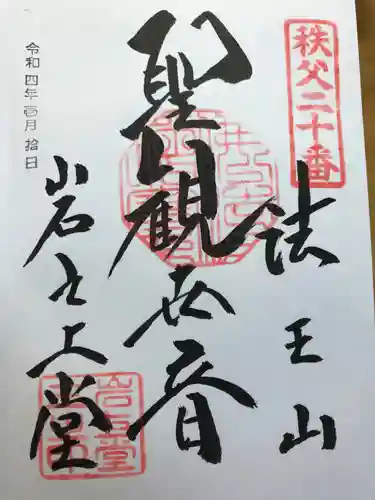 秩父二十番
法王山
聖観世音
岩之上堂
令和四年壹月拾日